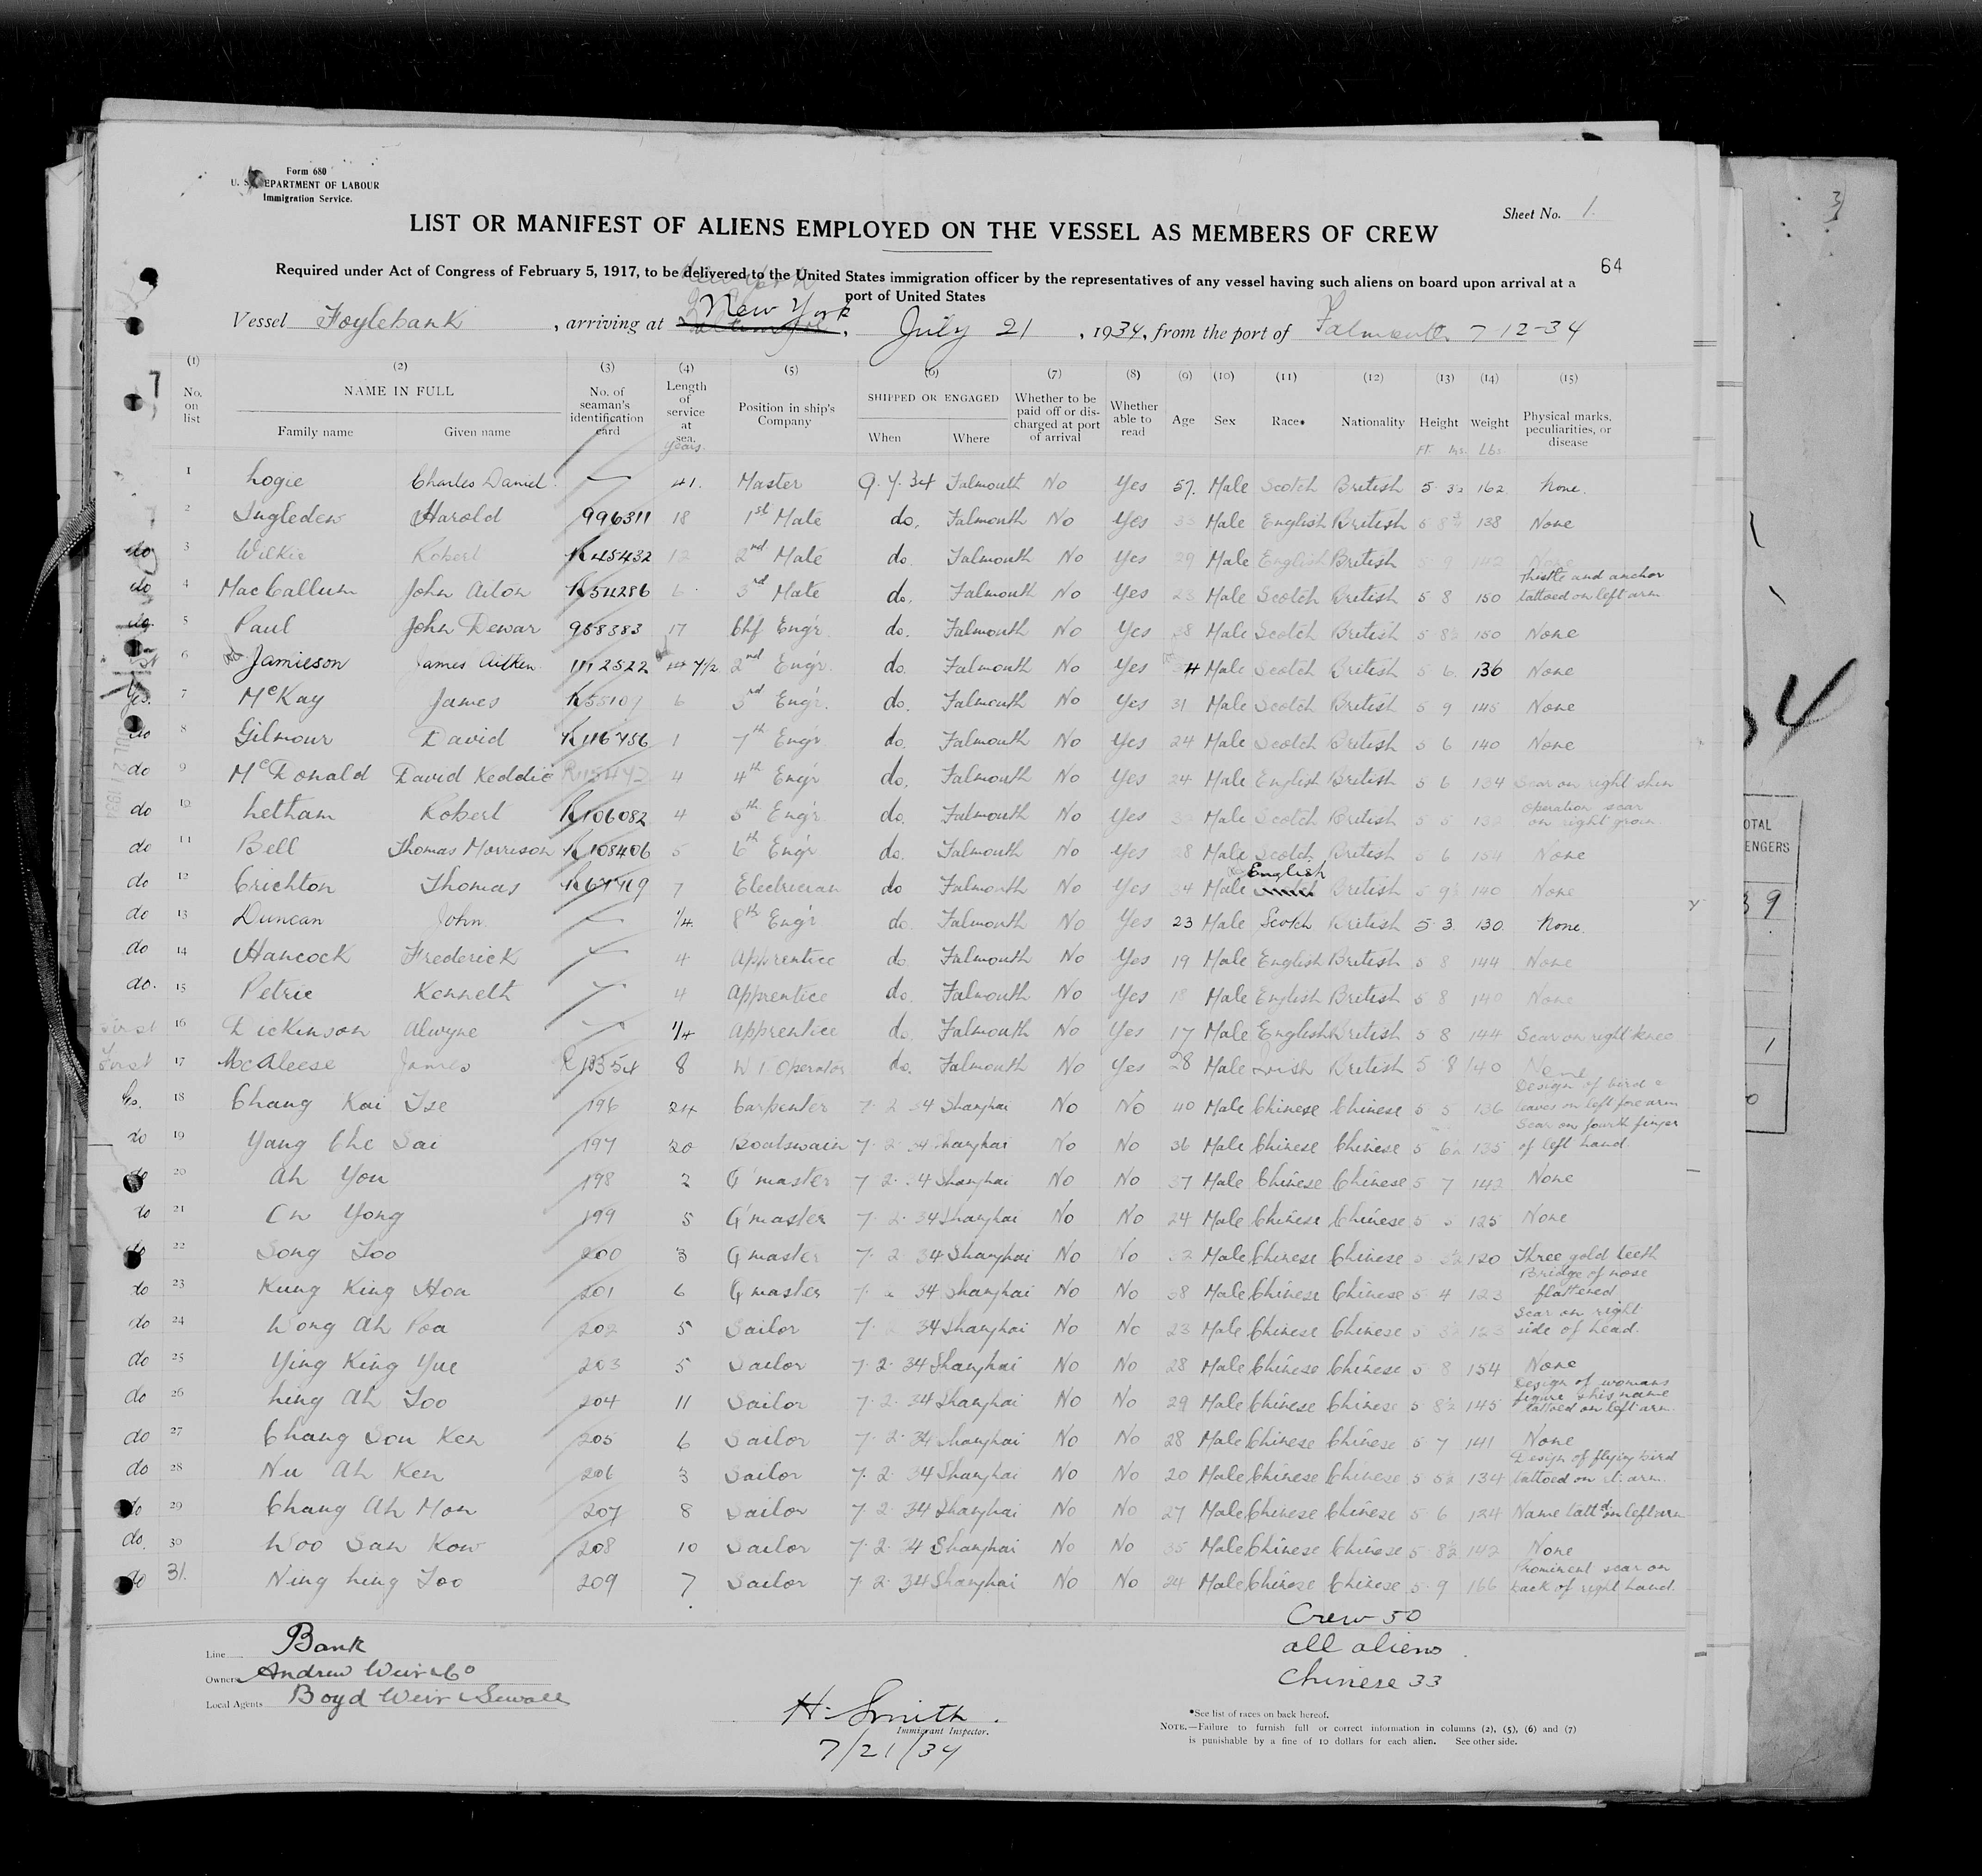 Form 680
U. S. DEPARTMENT OF LABOUR
Immigration Service.
Sheet No. 1.
LIST OR MANIFEST OF ALIENS EMPLOYED ON THE VESSEL AS MEMBERS OF CREW
64
Required under Act of Congress of February 5, 1917, to be delivered to the United States immigration officer by the representatives of any vessel having such aliens on board upon arrival at a
port of United States
Vessel Foylebank, arriving at New York, July 21, 1934, from the port of Falmouth 7-12-34
(1) (2) (3) (4) (5) (6) (7) (8) (9) (10) (11) (12) (13) (14) (15)
No. on list NAME IN FULL Family name Given name No. of seaman's identification card Length of service at sea. years. Position in ship's Company SHIPPED OR ENGAGED When Where Whether to be paid off or discharged at port of arrival Whether able to read Age Sex Race* Nationality Height Ft Ins Weight Lbs Physical marks, peculiarities, or disease
1 Logie Charles Daniel — 41. Master 9.7.34 Falmouth No Yes 57. Male Scotch British 5 3½ 162 None.
2 Ingledew Harold 996311 18 1st Mate do. Falmouth No Yes 33 Male English British 5 8¾ 138 None
do 3 Wilkie Robert R45432 12 2nd Mate do. Falmouth No Yes 29 Male English British 5 9 142 None
do 4 MacCallum John Aiton R54286 6 3rd Mate do. Falmouth No Yes 23 Male Scotch British 5 8 150 Thistle and anchor tattoed on left arm
do. 5 Paul John Dewar 958383 17 Chf Eng'r do. Falmouth No Yes 38 Male Scotch British 5 8½ 150 None
6 Jamieson James Aitken 1112522 7½ 2nd Eng'r. do. Falmouth No Yes 34 Male Scotch British 5 6 136 None
Yes. 7 McKay James R55107 6 3rd Eng'r. do. Falmouth No Yes 31 Male Scotch British 5 9 145 None
do 8 Gilmour David R116756 1 7th Engr do. Falmouth No Yes 24 Male Scotch British 5 6 140 None
do 9 McDonald David Keddie 4 4th Eng'r do. Falmouth No Yes 24 Male English British 5 6 134 Scar on right shin
do 10 Letham Robert R106082 4 5th Eng'r do. Falmouth No Yes Male Scotch British 5 5 Operation scar on right groin
do 11 Bell Thomas Morrison R108406 5 6th Eng'r do. Falmouth No Yes 28 Male Scotch British 5 6 154 None
do 12 Crichton Thomas 7 Electrician do Falmouth No Yes 34 Male English British 5 9½ 140 None
do 13 Duncan John — ¼ 8th Eng'r do. Falmouth No Yes 23 Male Scotch British 5 3. 130 None.
do 14 Hancock Frederick — 4 Apprentice do. Falmouth No Yes 19 Male English British 5 8 144 None
do. 15 Petrie Kenneth — 4 Apprentice do. Falmouth No Yes 18 Male English British 5 8 140 None
First 16 Dickinson Alwyne — ¼ Apprentice do. Falmouth No Yes 17 Male English British 5 8 144 Scar on right knee
First 17 McAleese James 8 W T Operator do. Falmouth No Yes 28 Male Irish British 5 8 140 None
18 Chang Kai Tse 196 24 Carpenter 7. 2 34 Shanghai No No 40 Male Chinese Chinese 5 5 136 Design of bird & leaves on left fore arm
do 19 Yang Che Sai 197 20 Boatswain 7 2 34 Shanghai No No 36 Male Chinese Chinese 5 6½ 135 Scar on fourth finger of left hand
do 20 Ah You 198 2 Q'master 7 2. 34 Shanghai No No 37 Male Chinese Chinese 5 7 142 None
do 21 Yong 199 5 Q'master 7. 2. 34 Shanghai No No 24 Male Chinese Chinese 5 5 125 None
do 22 Song Foo 200 3 Qmaster 7 2 34 Shanghai No No 32 Male Chinese Chinese 5 120 Three gold teeth
do 23 Kung King Hoa 201 6 Qmaster 7. 2 34 Shanghai No No 38 Male Chinese Chinese 5 4 123 Bridge of nose flattened
do 24 Wong Ah Poa 202 5 Sailor 7. 2 34 Shanghai No No 23 Male Chinese Chinese 5 123 Scar on right side of head.
do 25 Ying King Yue 203 5 Sailor 7. 2. 34 Shanghai No No 28 Male Chinese Chinese 5 8 154 None
do 26 Ling Ah Foo 204 11 Sailor 7. 2. 34 Shanghai No No 29 Male Chinese Chinese 5 8½ 145 Design of womans figure & his name tattoed on left arm.
do 27 Chang Sou Ken 205 6 Sailor 7. 2. 34 Shanghai No No 28 Male Chinese Chinese 5 7 141 None
do 28 Nu Ah Ken 206 3 Sailor 7. 2. 34 Shanghai No No 20 Male Chinese Chinese 5 5½ 134 Design of flying bird tattoed on lt. arm.
do 29 Chang Ah Mon 207 8 Sailor 7 2 34 Shanghai No No 27 Male Chinese Chinese 5 6 124 Name tattd. on left arm
do. 30 Woo San Kow 208 10 Sailor 7. 2. 34 Shanghai No No 35 Male Chinese Chinese 5 8½ 142 None
do 31. Ning Ling Foo 209 7 Sailor 7. 2. 34 Shanghai No No 24 Male Chinese Chinese 5. 9 166 Prominent scar on back of right hand.
Crew 50
all aliens
Chinese 33
Line Bank
Owners Andrew Weir & Co
Local Agents Boyd Weir & Sewall
H. Smith.
Immigrant Inspector.
7/21/34
*See list of races on back hereof.
NOTE.—Failure to furnish full or correct information in columns (2), (5), (6) and (7)
is punishable by a fine of 10 dollars for each alien. See other side.